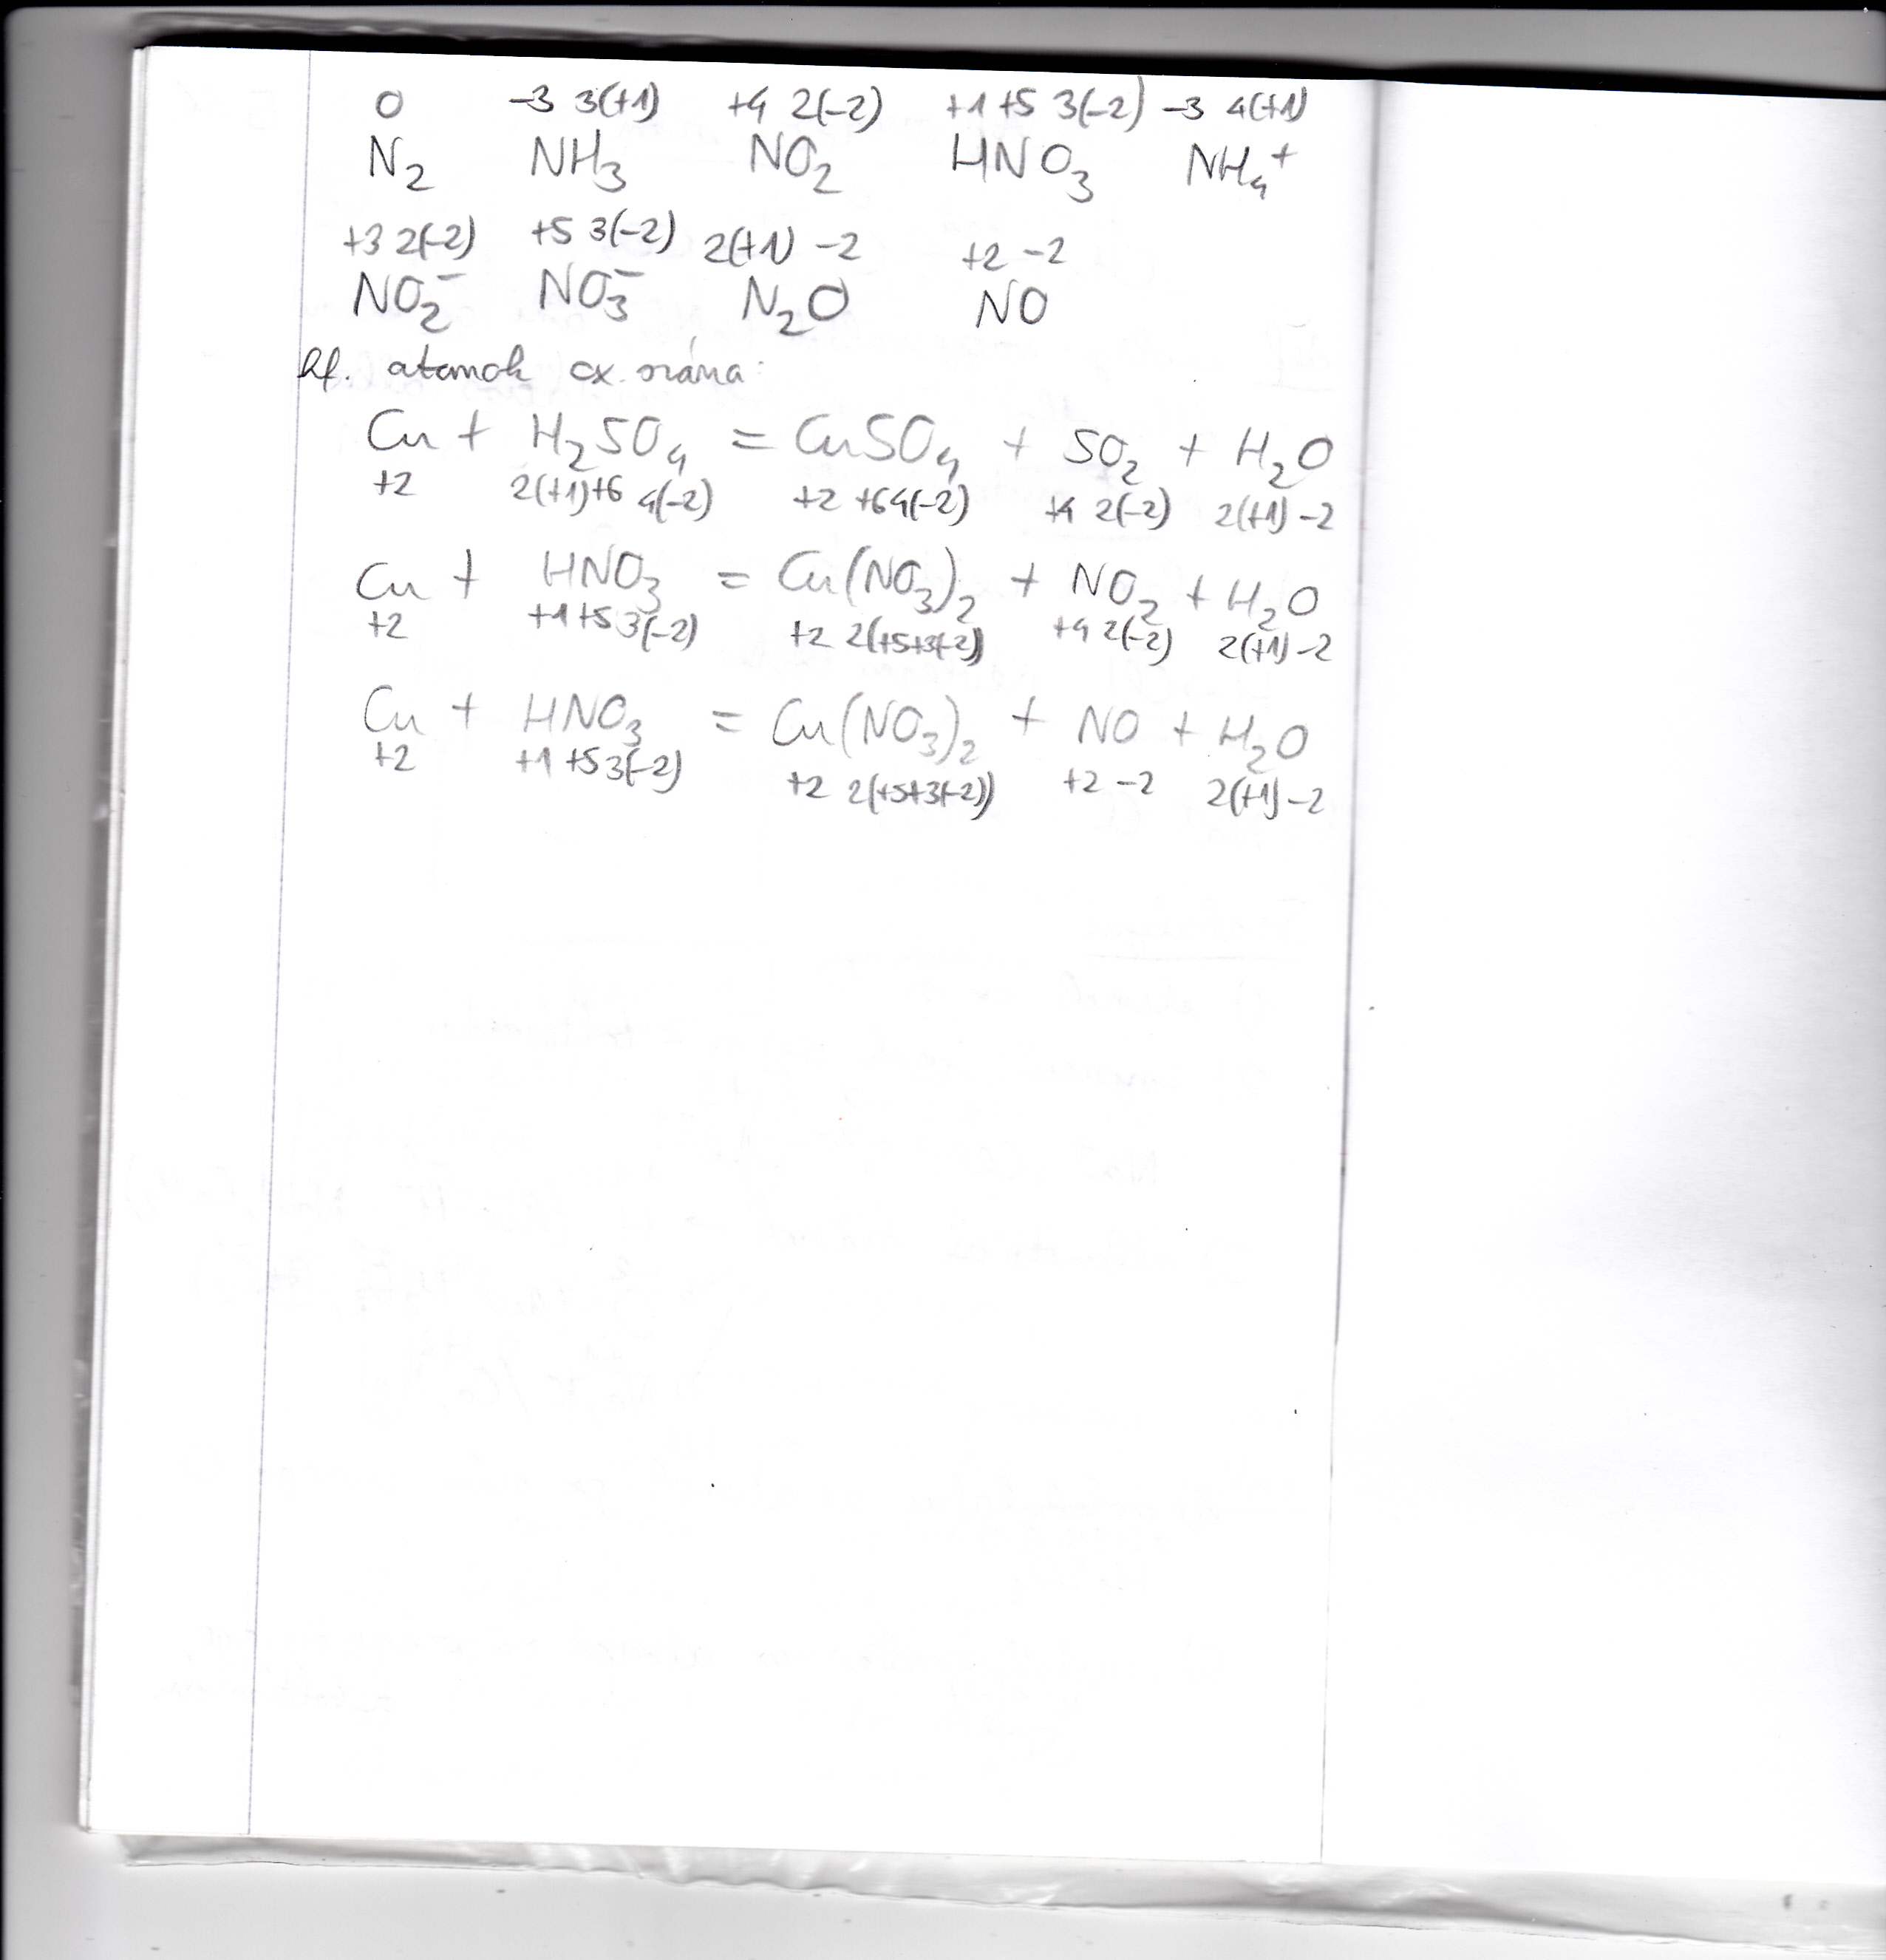 0 -3 3(+1) +4 2(-2) +1 +5 3(-2) -3 4(+1)
N₂ NH₃ NO₂ HNO₃ NH₄⁺
+3 2(-2) +5 3(-2) 2(+1) -2 +2 -2
NO₂⁻ NO₃⁻ N₂O NO
Hf. atomok ox. száma:
Cu + H₂SO₄ = CuSO₄ + SO₂ + H₂O
+2 2(+1)+6 4(-2) +2 +6 4(-2) +4 2(-2) 2(+1) -2
Cu + HNO₃ = Cu(NO₃)₂ + NO₂ + H₂O
+2 +1 +5 3(-2) +2 2(+5+3(-2)) +4 2(-2) 2(+1) -2
Cu + HNO₃ = Cu(NO₃)₂ + NO + H₂O
+2 +1 +5 3(-2) +2 2(+5+3(-2)) +2 -2 2(+1) -2